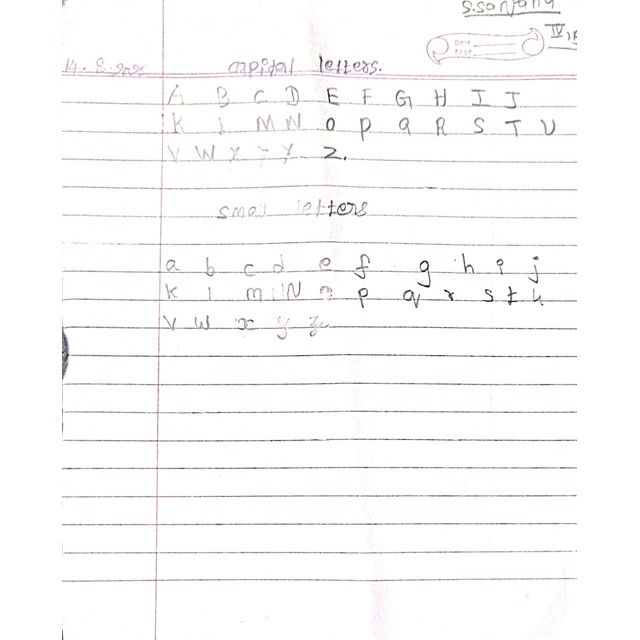 S.Sanjana
IV
Date
Page
capital letters.
A B C D E F G H I J
K l M N O P Q R S T U
V W X Y Z.
small letters
a b c d e f g h i j
k l m N o p q r s t u
v w x y z